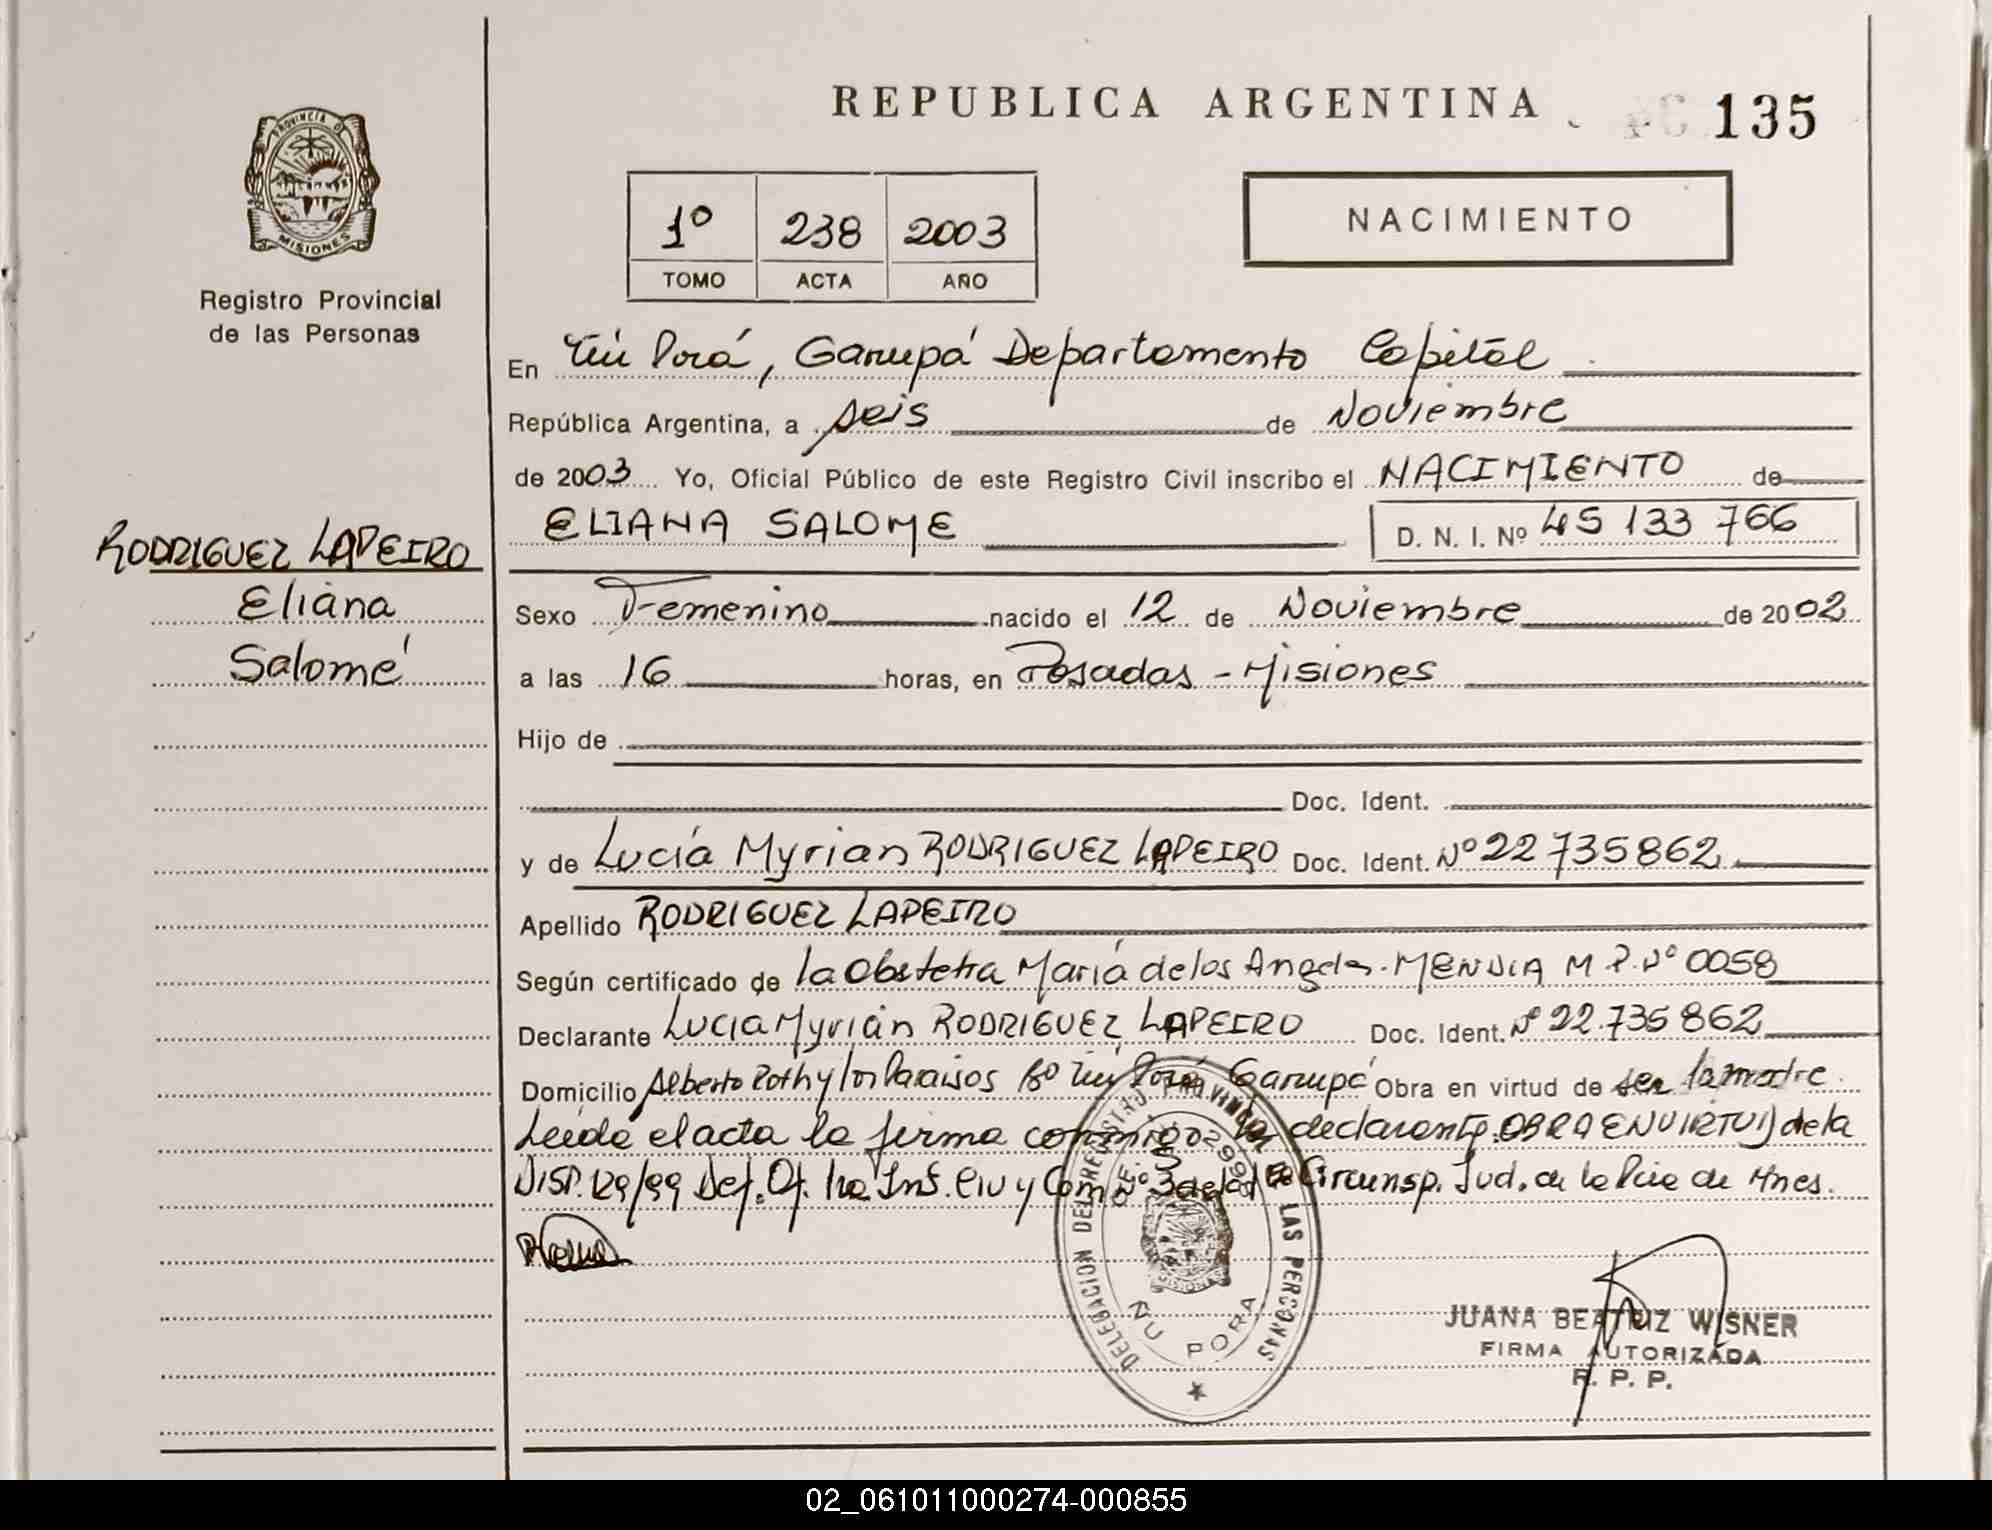 REPUBLICA ARGENTINA
135
PROVINCIA DE
MISIONES
Registro Provincial
de las Personas
1º 238 2003
TOMO ACTA AÑO
NACIMIENTO
En Ñu Porá, Garupá Departamento Capital
República Argentina, a seis de Noviembre
de 2003 Yo, Oficial Público de este Registro Civil inscribo el NACIMIENTO de
ELIANA SALOME D. N. I. Nº 45 133 766
RODRIGUEZ LAPEIRO
Eliana
Salomé
Sexo Femenino nacido el 12 de Noviembre de 2002
a las 16 horas, en Posadas - Misiones
Hijo de
Doc. Ident.
y de Lucía Myrian RODRIGUEZ LAPEIRO Doc. Ident. Nº 22 735862
Apellido RODRIGUEZ LAPEIRO
Según certificado de la Obstetra María de los Angeles MENDIA M.P. Nº 0058
Declarante Lucia Myrian RODRIGUEZ LAPEIRO Doc. Ident. Nº 22.735862
Domicilio Alberto Rothy los Paraisos Bº Ñu Porá Garupá Obra en virtud de ser la madre
Leída el acta la firma conmigo la declarante. OBRA EN VIRTUD de la
DISP. 129/99 Def. Of. Inst. Civ y Com Nº 3 de la Circunsp. Jud. de la Pcia de Mnes.
DELEGACION DEL REGISTRO PROVINCIAL DE LAS PERSONAS
ÑU PORA
JUANA BEATRIZ WISNER
FIRMA AUTORIZADA
R. P. P.
02_061011000274-000855